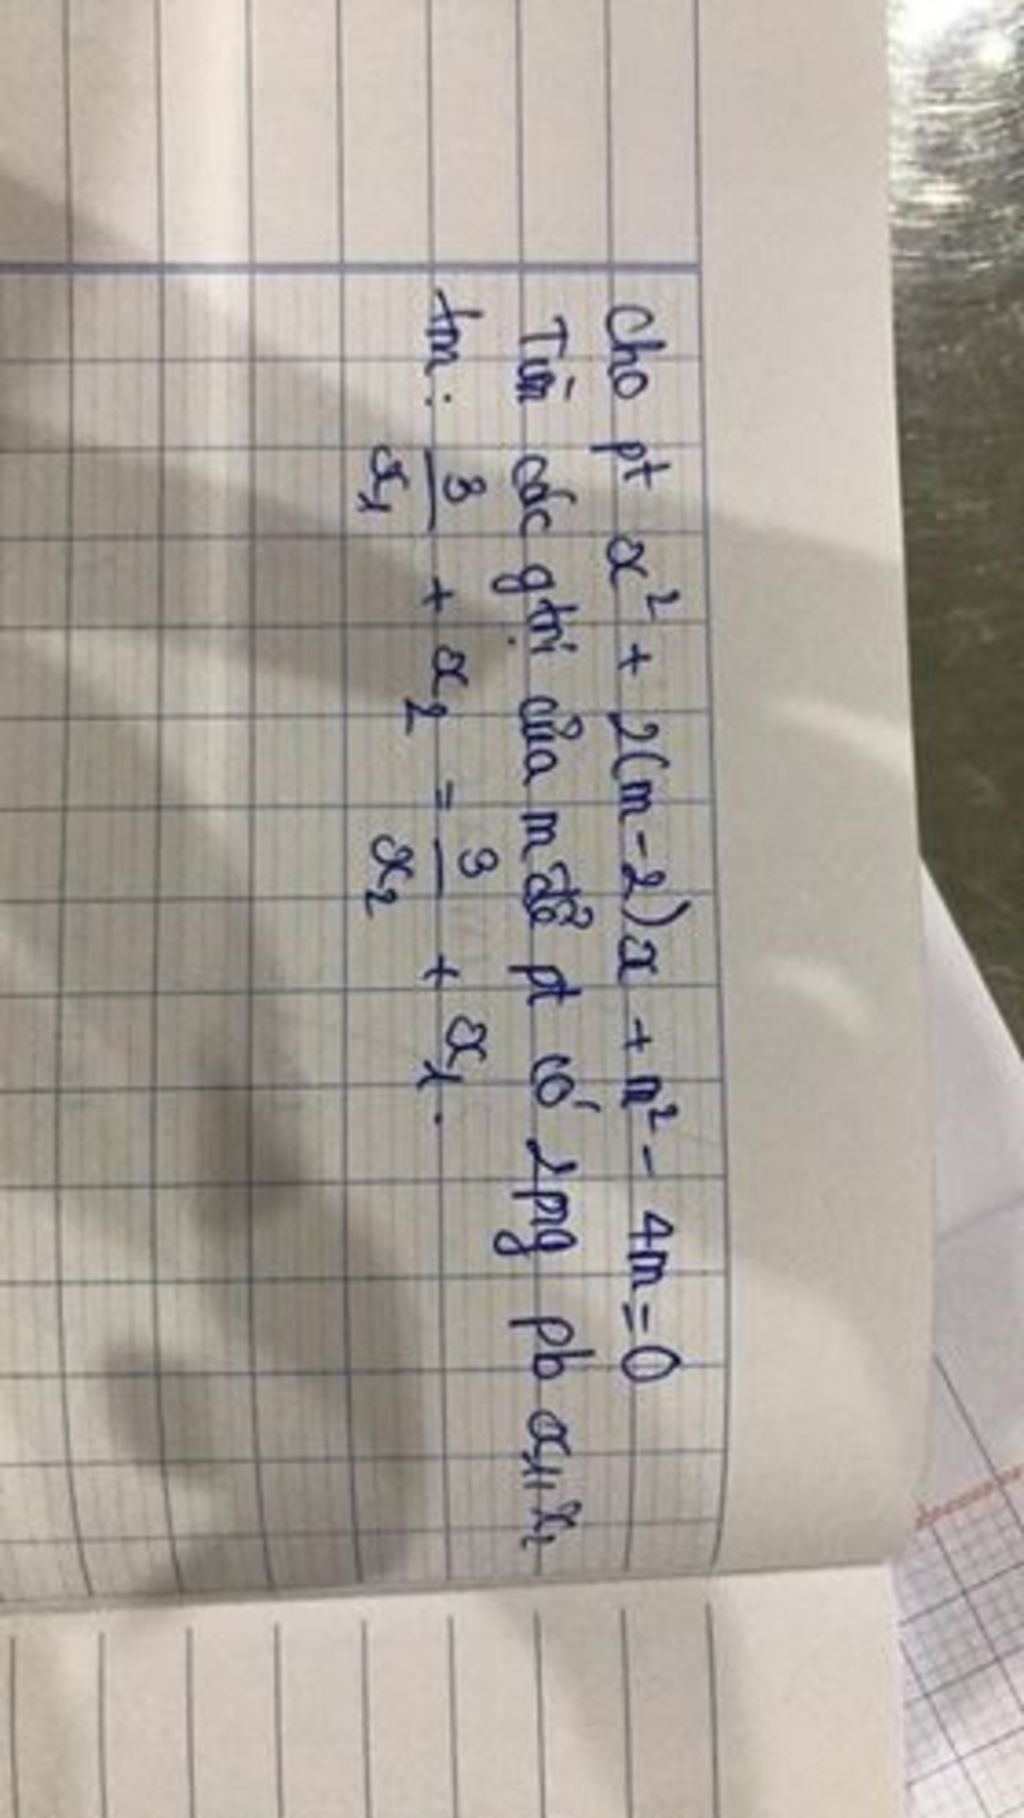 Cho pt x² + 2(m-2)x + m² - 4m = 0
Tìm các gtrị của m để pt có 2 png pb x₁, x₂
tm: 3/x₁ + x₂ = 3/x₂ + x₁.